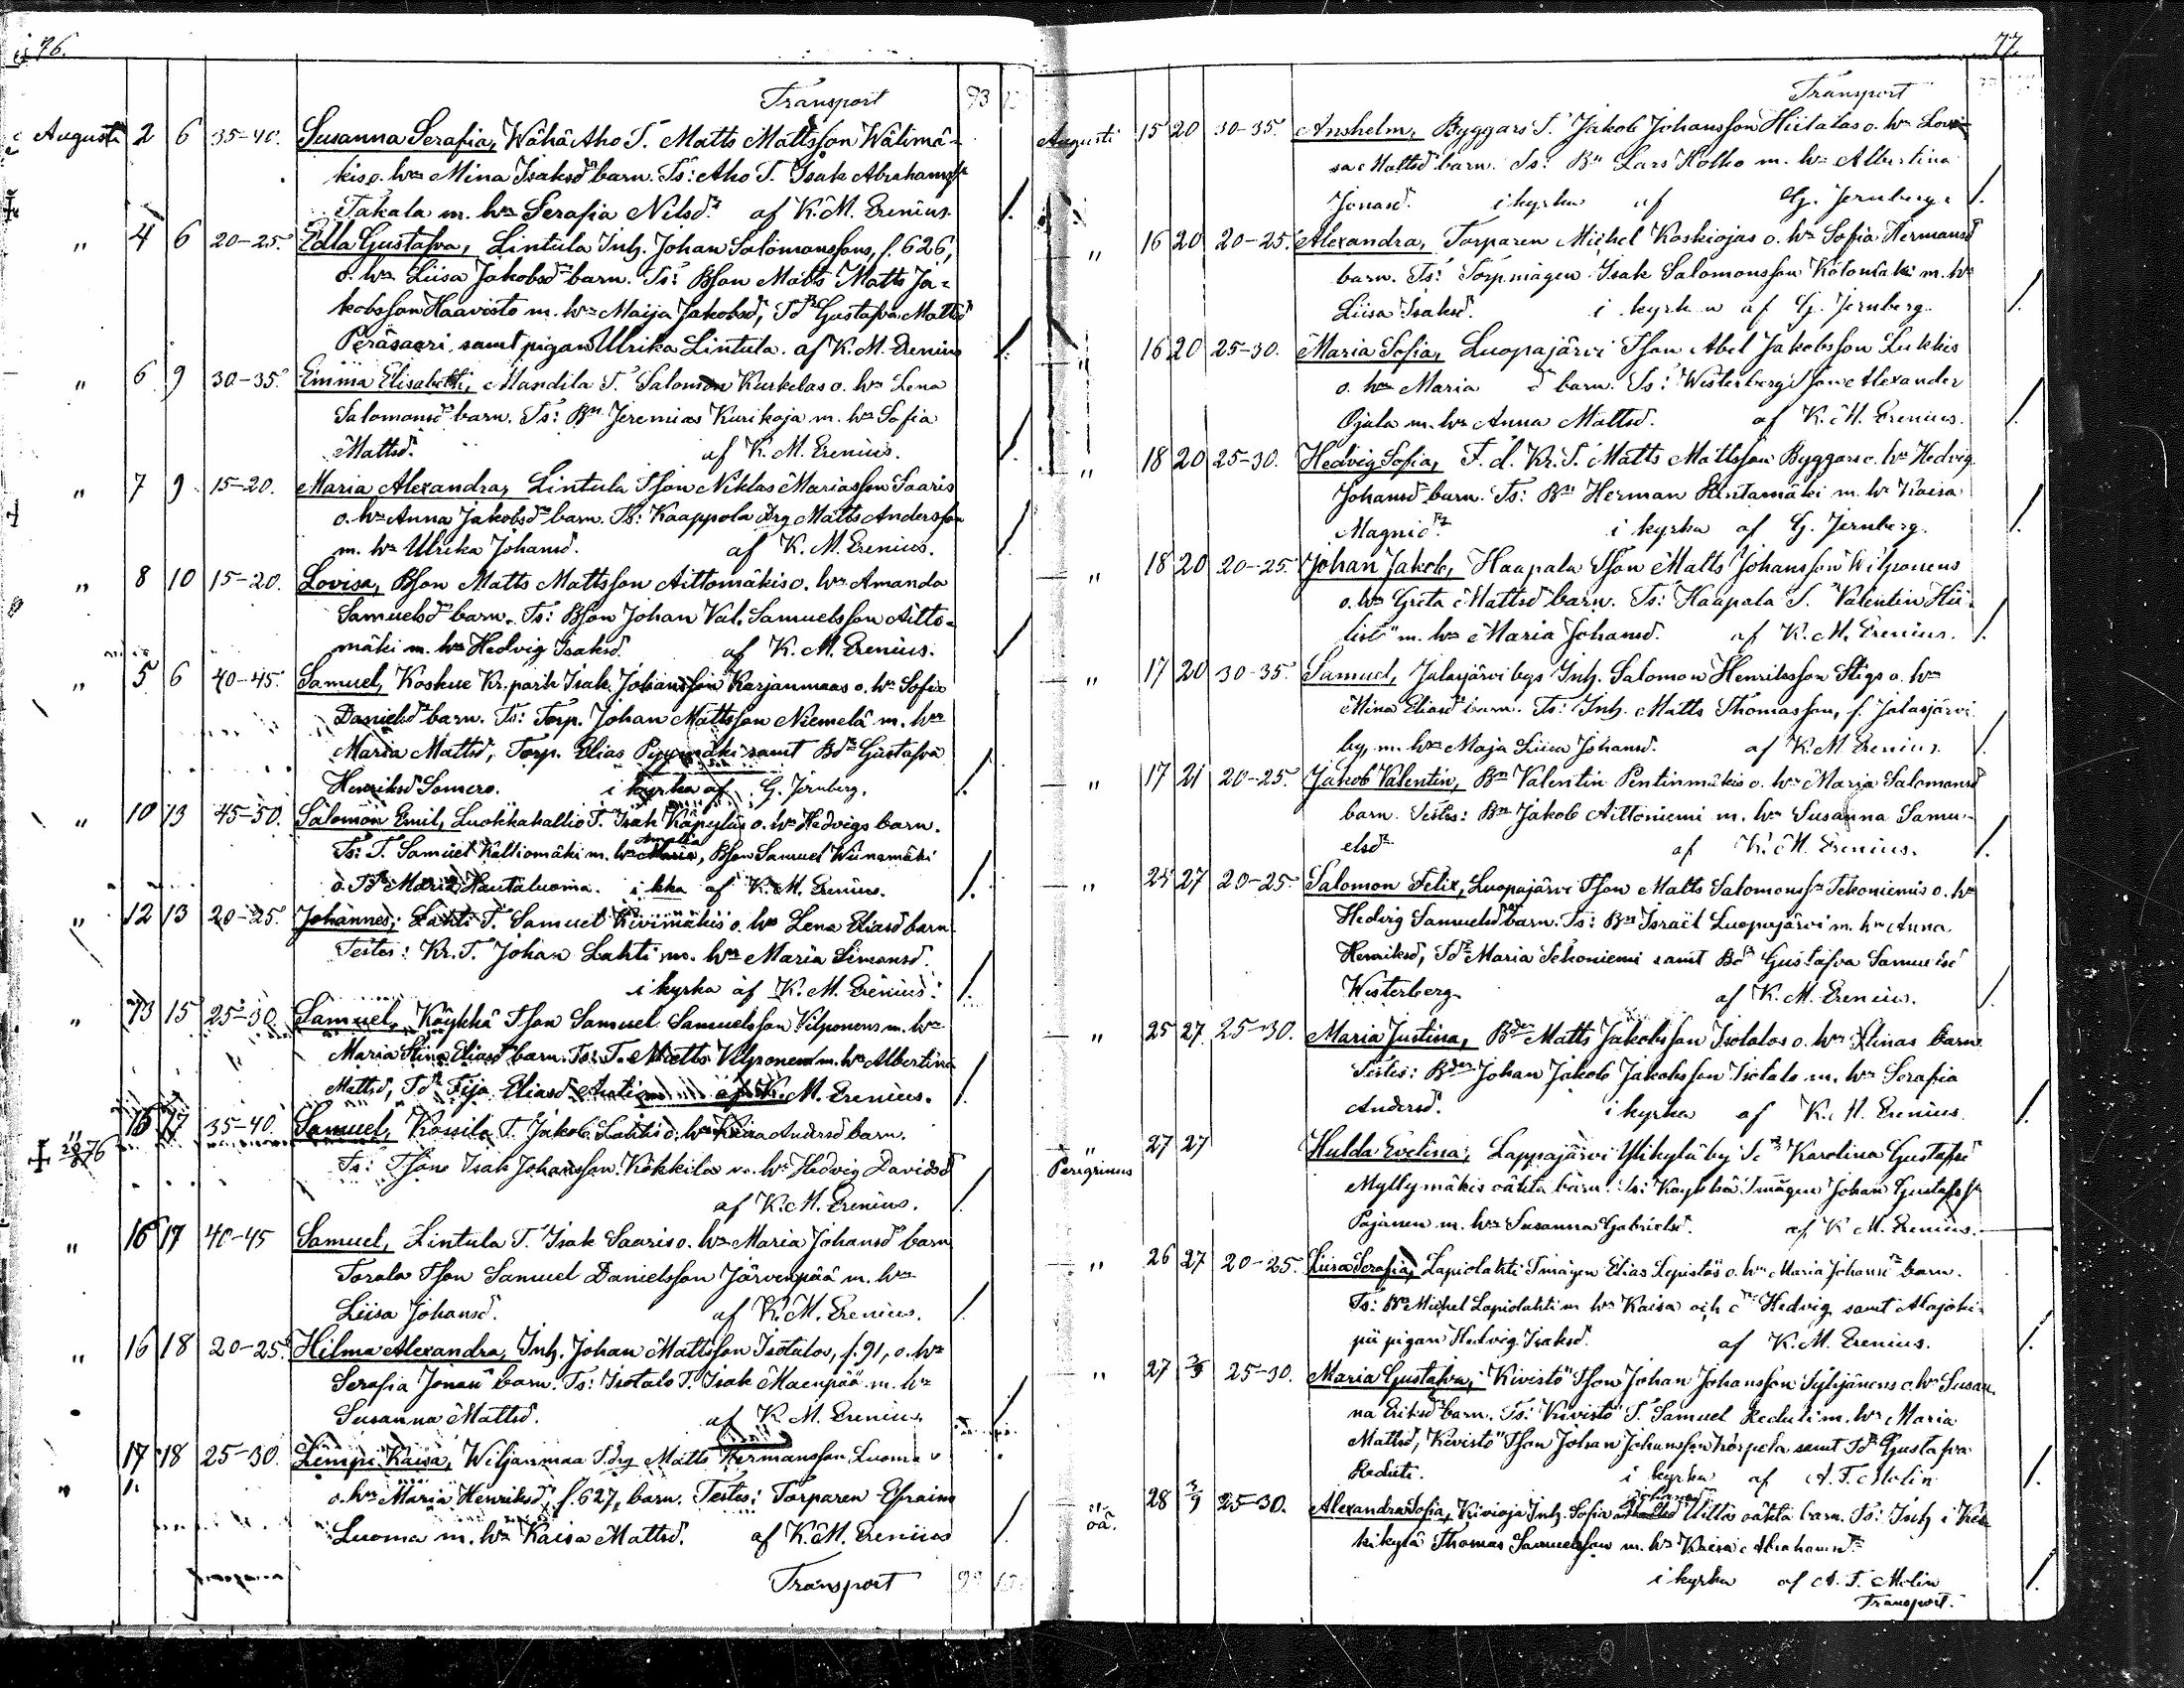 76.
Transport 93
Augusti 2 6 35-40. Susanna Serafia, Wähä Aho T. Matts Mattsson Wälimä-
kis o. hs Mina Isaksds barn. Ts: Aho T. Isak Abrahamss
Takala m. hs Serafia Nilsd. af K. M. Erenius.
" 4 6 20-25. Edla Gustafva, Lintula Inh. Johan Salomonssons, f. 626,
o. hs Liisa Jakobsds barn. Ts: Bson Matts Matts Ja-
kobsson Haavisto m. hs Maija Jakobsd, Td Gustafva Mattsd
Peräsaari, samt pigan Ulrika Lintula. af K. M. Erenius
" 6 9 30-35. Emma Elisabeth, Mandila T. Salomon Kurkelas o. hs Lena
Salomonsds barn. Ts: Bn Jeremias Kurikoja m. hs Sofia
Mattsd. af K. M. Erenius.
" 7 9 15-20. Maria Alexandra, Lintula Tson Niklas Mariasson Saaris
o. hs Anna Jakobsds barn. Ts: Kaappola drg Matts Andersson
m. hs Ulrika Johansd. af K. M. Erenius.
" 8 10 15-20. Lovisa, Bson Matts Mattsson Aittomäkis o. hs Amanda
Samuelsds barn. Ts: Bson Johan Val. Samuelsson Aitto-
mäki m. hs Hedvig Isaksd. af K. M. Erenius.
" 5 6 40-45. Samuel, Koskue Kr. park Isak Johansson Karjanmaas o. hs Sofia
Danielsds barn. Ts: Torp. Johan Mattsson Niemelä m. hs
Maria Mattsd, Torp. Elias samt Bds Gustafva
Henriksd Somero. i kyrka af G. Jernberg.
" 10 13 45-50. Salomon Emil, Luokkakallio T. Isak Käpyläs o. hs Hedvigs barn.
Amalia
Ts: T. Samuel Kalliomäki m. hs Maria, Bson Samuel Wiinamäki
o. Td Maria Hautaluoma. i kka af K. M. Erenius.
" 12 13 20-25. Johannes, Lahti T. Samuel Kivimäkis o. hs Lena Eliasds barn
Testes: Kr. T. Johan Lahti m. hs Maria Simonsd.
i kyrka af K. M. Erenius.
" 13 15 25-30. Samuel, Köykkä Tson Samuel Samuelsson Vilponens m. hs
Maria Stina Eliasds barn. Ts: T. Matts Vilponen m. hs Albertina
Mattsd, Td Fija Eliasd af K. M. Erenius.
" 15 17 35-40. Samuel, T. Jakob Lahtis o. hs Kaisa Andersds barn.
76
Ts: Tson Isak Johansson Kokkila m. hs Hedvig Davidsd
af K. M. Erenius.
" 16 17 40-45 Samuel, Lintula T. Isak Saaris o. hs Maria Johansds barn
Torala Tson Samuel Danielsson Järvenpää m. hs
Liisa Johansd. af K. M. Erenius.
" 16 18 20-25. Hilma Alexandra, Inh. Johan Mattsson Isotalos, f. 91, o. hs
Serafia Jonasds barn. Ts: Isotalo T. Isak Mäenpää m. hs
Susanna Mattsd. af K. M. Erenius
17 18 25-30. Lempi Kaisa, Wiljanmaa T.drg Matts Hermansson Luoma
o. hs Maria Henriksds, f. 627, barn. Testes: Torparen Efraim
Luoma m. hs Kaisa Mattsd. af K. M. Erenius
Transport
77.
Transport
Augusti 15 20 30-35. Anshelm, Byggars T. Jakob Johansson Hiitalas o. hs Lovi-
sa Mattsds barn. Ts: Bn Lars Kotko m. hs Albertina
Jonasd. i kyrka af G. Jernberg.
" 16 20 20-25. Alexandra, Torparen Michel Koskiojas o. hs Sofia Hermansd
barn. Ts: Torpmågen Isak Salomonsson m. hs
Liisa Isaksd. i kyrka af G. Jernberg.
" 16 20 25-30. Maria Sofia, Luopajärvi Tson Abel Jakobsson Lukkis
o. hs Maria ds barn. Ts: Westerberg Tson Alexander
Ojala m. hs Anna Mattsd. af K. M. Erenius.
" 18 20 25-30. Hedvig Sofia, F. d. Kr. T. Matts Mattsson Byggars o. hs Hedvig
Johansds barn. Ts: Bn Herman Rintamäki m. hs Kaisa
Magnid. i kyrka af G. Jernberg.
" 18 20 20-25. Johan Jakob, Haapala Tson Matts Johansson Wilponens
o. hs Greta Mattsds barn. Ts: Haapala T. Valentin Hii-
listö m. hs Maria Johansd. af K. M. Erenius.
" 17 20 30-35. Samuel, Jalasjärvi bys Inh. Salomon Henriksson Stigs o. hs
Mina Eliasds barn. Ts: Inh. Matts Thomasson, f. Jalasjärvi
by, m. hs Maja Liisa Johansd. af K. M. Erenius.
" 17 21 20-25. Jakob Valentin, Bn Valentin Pentinmäkis o. hs Maria Salomonsd
barn. Testes: Bn Jakob Aittoniemi m. hs Susanna Samu-
elsd. af K. M. Erenius.
" 25 27 20-25. Salomon Felix, Luopajärvi Tson Matts Salomonss. Tekoniemis o. hs
Hedvig Samuelsds barn. Ts: Bn Israel Luopajärvi m. hs Anna
Henriksd, Td Maria Tekoniemi samt Bd Gustafva Samuelsd
Westerberg. af K. M. Erenius.
" 25 27 25-30. Maria Justina, Bden Matts Jakobsson Isotalos o. hs Stinas barn
Testes: Bden Johan Jakob Jakobsson Isotalo m. hs Serafia
Andersd. i kyrka af K. M. Erenius
" 27 27 Hulda Evelina, Lappajärvi Ylikylä by Karolina Gustafsd
Peregrinus
Myllymäkis oäkta barn. Ts: Köykkä Tmågen Johan Gustafss
Pajanen m. hs Susanna Gabrielsd. af K. M. Erenius.
" 26 27 20-25. Liisa Serafia, Lapiolahti Tmågen Elias Lepistös o. hs Maria Johansds barn.
Ts: Bn Michel Lapiolahti m hs Kaisa och Hedvig samt Alajoki-
pii pigan Hedvig Isaksd. af K. M. Erenius.
" 27 3/9 25-30. Maria Gustafva, Kivistö Tson Johan Johansson Syhjänens o. hs Susan-
na Eriksds barn. Ts: Kivistö T. Samuel Reduti m. hs Maria
Mattsd, Kivistö Tson Johan Johansson Korpela samt Td Gustafva
Reduti. i kyrka af A. T. Molin
" 28 3/9 25-30. Alexandra Sofia, Kivioja Inh. Sofia Johansd Uitto oäkta barn. Ts: Inh i Kes-
oä.
kikylä Thomas Samuelsson m. hs Kaisa Abrahamsd
i kyrka af A. T. Molin
Transport.